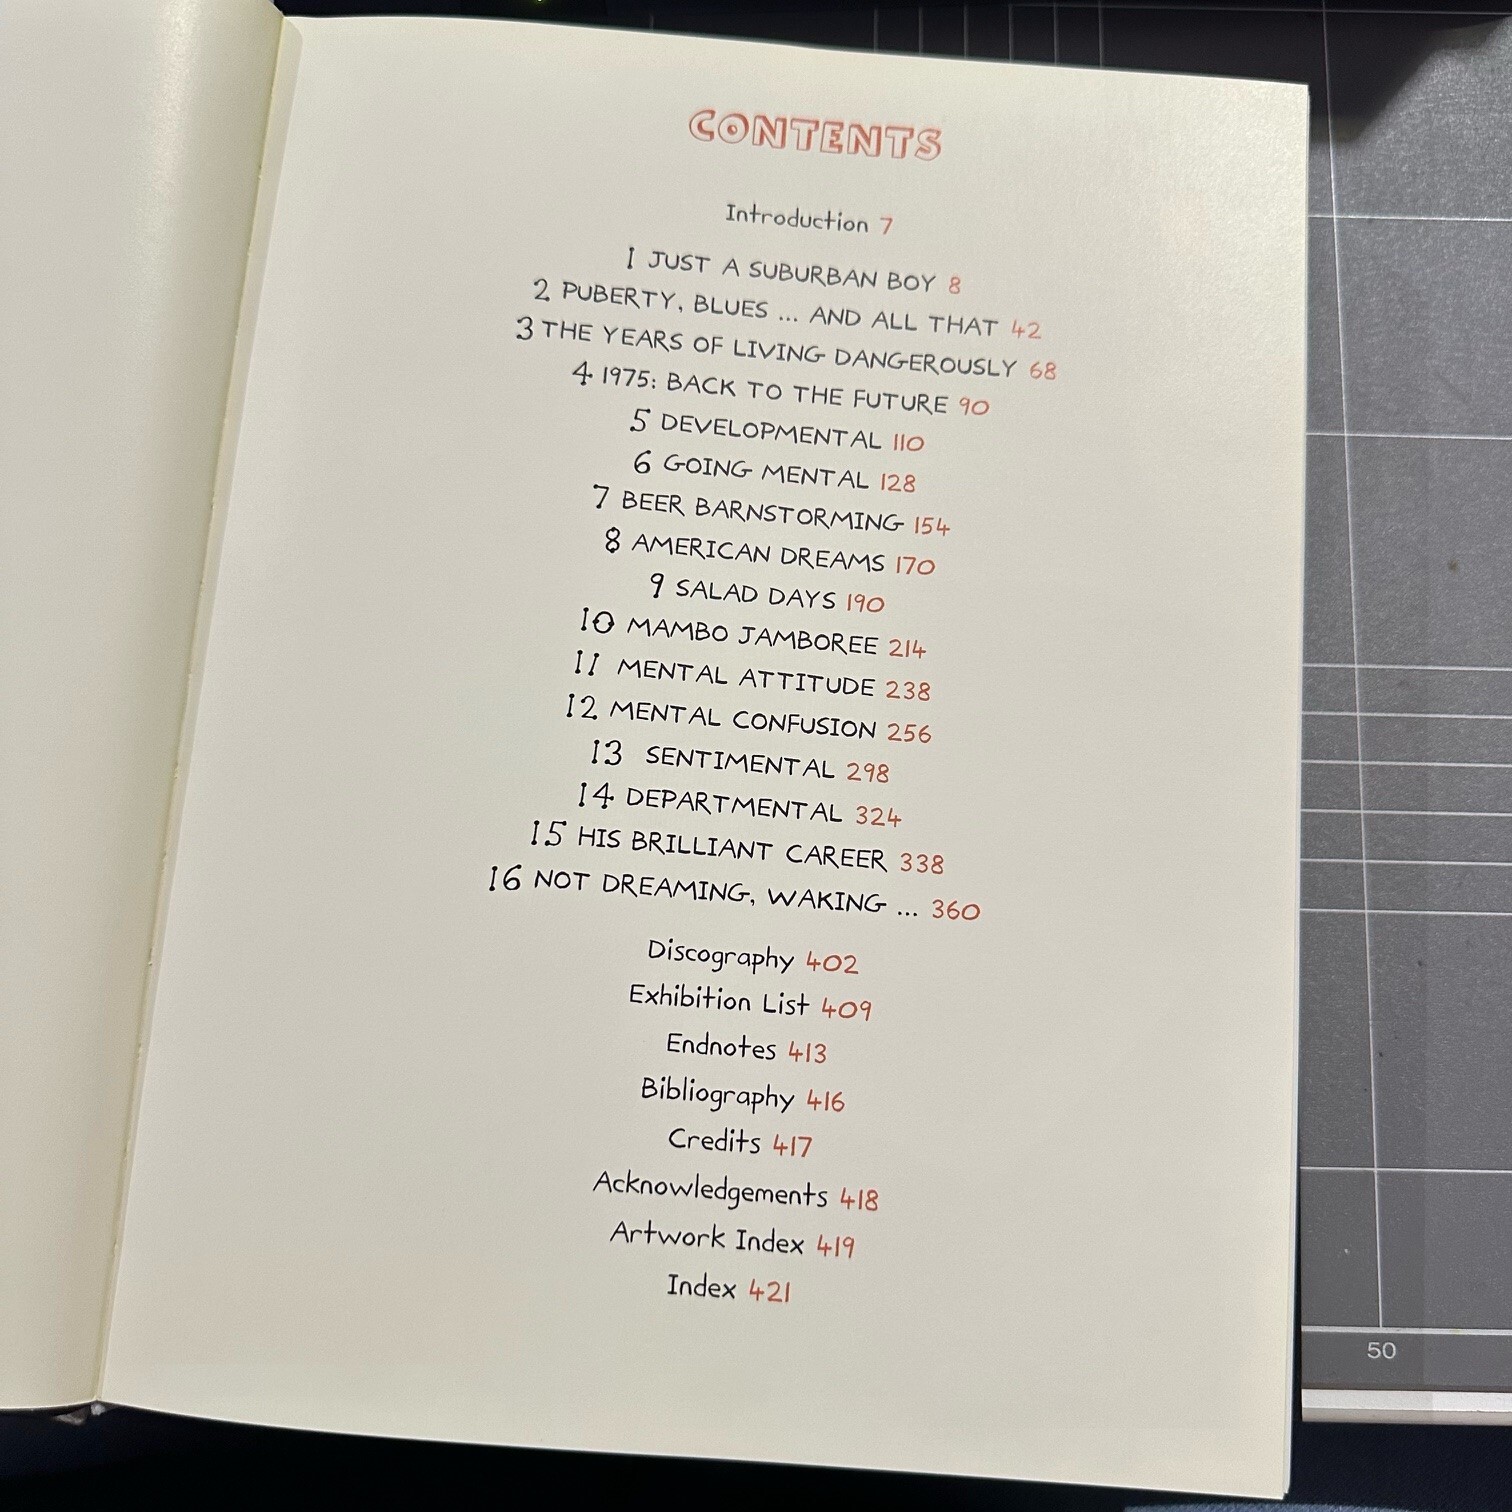 CONTENTS
Introduction 7
1 JUST A SUBURBAN BOY 8
2 PUBERTY, BLUES ... AND ALL THAT 42
3 THE YEARS OF LIVING DANGEROUSLY 68
4 1975: BACK TO THE FUTURE 90
5 DEVELOPMENTAL 110
6 GOING MENTAL 128
7 BEER BARNSTORMING 154
8 AMERICAN DREAMS 170
9 SALAD DAYS 190
10 MAMBO JAMBOREE 214
11 MENTAL ATTITUDE 238
12 MENTAL CONFUSION 256
13 SENTIMENTAL 298
14 DEPARTMENTAL 324
15 HIS BRILLIANT CAREER 338
16 NOT DREAMING, WAKING ... 360
Discography 402
Exhibition List 409
Endnotes 413
Bibliography 416
Credits 417
Acknowledgements 418
Artwork Index 419
Index 421
50